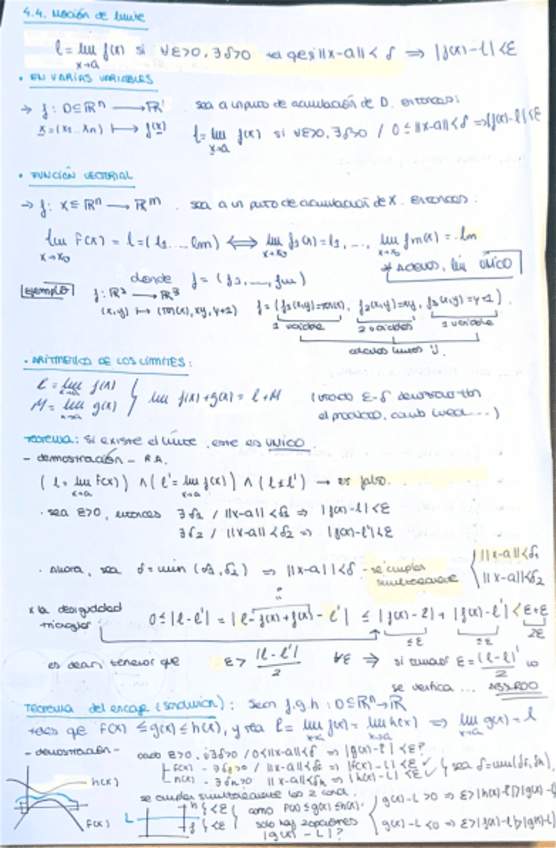 4.4. Noción de límite
l = lim f(x) si ∀ε>0, ∃δ>0 tal que si ||x-a|| < δ ⟹ |f(x) - l| < ε
x→a
• EN VARIAS VARIABLES
→ f: D⊆ℝⁿ → ℝ¹. sea a un punto de acumulación de D. entonces:
x=(x1...xn) ↦ f(x) l = lim f(x) si ∀ε>0, ∃δ>0 / 0 ≤ ||x-a|| < δ ⇒ |f(x)-l| < ε
x→a
• FUNCIÓN VECTORIAL
→ f: X⊆ℝⁿ → ℝᵐ. sea a un punto de acumulación de X. Entonces:
lim F(x) = l = (l1...lm) ⟺ lim f1(x) = l1, ..., lim fm(x) = lm
x→x0 x→x0 x→x0
* Además, lim ÚNICO
donde f = (f1, ..., fm)
Ejemplo f: ℝ² → ℝ³
(x,y) ↦ (sen(x), xy, y+1) f = (f1(x,y)=sen(x), f2(x,y)=xy, f3(x,y)=y+1).
1 variable 2 variables 1 variable
• ARITMÉTICA DE LOS LÍMITES:
L = lim f(x)
x→a
M = lim g(x) } lim f(x)+g(x) = L+M (usando ε-δ
x→a
el producto, comb lineal...)
Teorema: Si existe el límite, este es ÚNICO.
- demostración - R.A.
(l = lim f(x)) ∧ (l' = lim f(x)) ∧ (l ≠ l') → es falso.
x→a x→a
• sea ε>0, entonces ∃δ1 / ||x-a|| < δ1 ⇒ |f(x)-l| < ε
∃δ2 / ||x-a|| < δ2 ⇒ |f(x)-l'| < ε
• Ahora, sea δ = min (δ1, δ2) ⇒ ||x-a|| < δ - se cumplen simultáneamente { ||x-a|| < δ1
||x-a|| < δ2
x la desigualdad triangular 0 ≤ |l-l'| = |l-f(x)+f(x)-l'| ≤ |f(x)-l| + |f(x)-l'| < ε+ε
≤ε ≤ε 2ε
es decir, tenemos que ε > |l-l'|/2 ∀ε ⇒ si tomamos ε = (l-l')/2 no
se verifica ... ABSURDO
Teorema del encaje (sandwich): Sean f,g,h: D⊆ℝⁿ→ℝ
tales que f(x) ≤ g(x) ≤ h(x), y sea l = lim f(x) = lim h(x) ⟹ lim g(x) = l
x→a x→a x→a
- demostración - dado ε>0, ¿∃δ>0 / 0<||x-a||<δ ⇒ |g(x)-l| < ε?
f(x) - ∃δf>0 / ||x-a||<δf ⇒ |f(x)-L| < ε ✓
h(x) - ∃δh>0 ||x-a||<δh ⇒ |h(x)-L| < ε ✓ } sea δ=min(δf, δh)
se cumplen simultáneamente las 2 cond.
h(x)
f(x)
L
h } < ε
f } < ε
como f(x) ≤ g(x) ≤ h(x).
solo hay 2 opciones
|g(x) - L|?
g(x)-L > 0 ⇒ ε > |h(x)-l|
g(x)-L < 0 ⇒ ε > |f(x)-l|